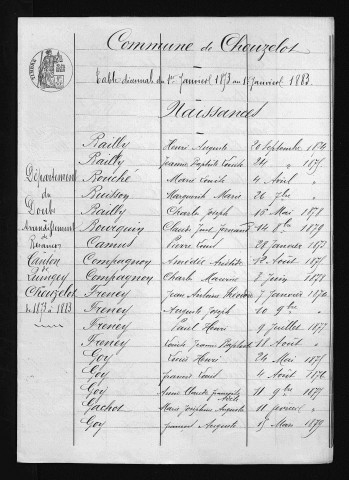 Commune de Chouzelot
Table décennale du 1er Janvier 1873 au 1er Janvier 1883.
Naissances
Département
du
Doubs
Arrondissement
de
Besançon
Canton
de
Quingey
Chouzelot
de 1873 à 1883
Railly Henri Auguste 20 Septembre 1874
Railly Jeanne Baptiste Louise 24 " 1875
Bouché Marie Louise 4 Avril "
Buisson Marguerite Marie 26 7bre "
Railly Charles Joseph 16 Mai 1878
Bourquin Claude Fernand 14 8bre 1879
Camus Pierre Louis 28 Janvier 1877
Compagnon Amédée Aristide Août 1875
Compagnon Charles Maurice 8 Juin 1878
Freney Jean Antoine Théodore 7 Janvier 1876
Freney Auguste Joseph 10 9bre "
Freney Paul Henri 9 Juillet 1877
Freney Louise Jeanne Baptiste 11 Août "
Goy Louis Henri 24 Mai 1875
Goy Louis 4 Août 1876
Goy Anne Claude Françoise Adèle 11 9bre 1877
Gachot Marie Joséphine Auguste 11 Janvier "
Goy Auguste 15 Mars 1879